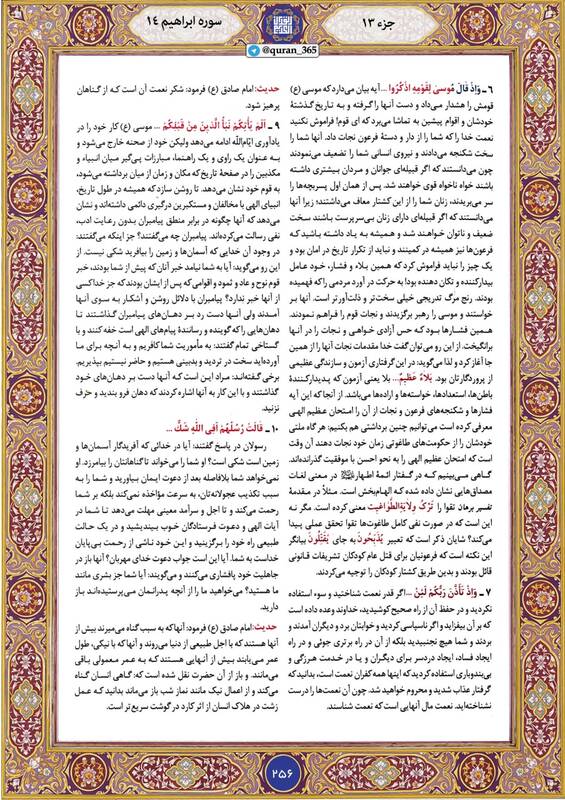 جزء ۱۳
سوره ابراهیم ۱۴
@quran_365
۶ ـ وَإِذْ قَالَ مُوسىٰ لِقَوْمِهِ اذْكُرُوا ... آیه بیان می‌دارد که موسی (ع)
قومش را هشدار می‌داد و دست آنها را گرفته و به تاریخ گذشتهٔ
خودشان و اقوام پیشین به تماشا می‌برد که ای قوم! فراموش نکنید
نعمت خدا را که شما را از دار و دستهٔ فرعون نجات داد. آنها شما را
سخت شکنجه می‌دادند و نیروی انسانی شما را تضعیف می‌نمودند
چون می‌دانستند که اگر قبیله‌ای جوانان و مردان بیشتری داشته
باشند خواه ناخواه قوی خواهند شد. پس از همان اول پسربچه‌ها را
سر می‌بریدند، زنان شما را از این کشتار معاف می‌داشتند؛ زیرا آنها
می‌دانستند که اگر قبیله‌ای دارای زنان بی‌سرپرست باشند سخت
ضعیف و ناتوان خواهند شد و همیشه به یاد داشته باشید که
فرعون‌ها نیز همیشه در کمینند و نباید از تکرار تاریخ در امان بود و
یک چیز را نباید فراموش کرد که همین بلاء و فشار، خود عامل
بیدارکننده و تکان دهنده بود! به حرکت در آورد مردمی را که فهمیده
بودند. رنج مرگ تدریجی خیلی سخت‌تر و ذلت‌آور است. آنها بر
خواستند و موسی را رهبر برگزیدند و نجات قوم را فراهم نمودند.
همین فشارها بود که حس آزادی خواهی و نجات را در آنها
برانگیخت. از این رو می‌توان گفت خدا مقدمات نجات آنها را از همین
جا آغاز کرد و لذا می‌گوید: در این گرفتاری آزمون و سازندگی عظیمی
از پروردگارتان بود. بَلاءٌ عَظِيمٌ... بلا یعنی آزمون که پدیدارکنندهٔ
باطن‌ها، استعدادها، خواسته‌ها و اراده‌ها می‌باشد. از آنجا که این
فشارها و شکنجه‌های فرعون و نجات از آن را امتحان عظیم الهی
معرفی کرده است می‌توانیم چنین برداشتی هم بکنیم: هر گاه ملتی
خودشان را از حکومت‌های طاغوتی زمان خود نجات دهند آن وقت
است که امتحان عظیم الهی را به نحو احسن با موفقیت گذرانده‌اند.
گاهی می‌بینیم که در گفتار ائمهٔ اطهار در معنی لغات
مصداق‌هایی نشان داده شده که الهام‌بخش است. مثلاً در مقدمهٔ
تفسیر برهان تقوا را تَرْكُ وِلَايَةِ الطَّوَاغِيتِ معنی کرده است. مگر نه
این است که در صورت نفی کامل طاغوت‌ها تقوا تحقق عملی پیدا
می‌کند؟ شایان ذکر است که تعبیر يُذَبِّحُونَ به جای يُقَتِّلُونَ بیانگر
این نکته است که فرعونیان برای قتل عام کودکان تشریفات قانونی
قائل بودند و بدین طریق کشتار کودکان را توجیه می‌کردند.
۷ ـ وَإِذْ تَأَذَّنَ رَبُّكُمْ لَئِنْ ... اگر قدر نعمت شناختید و سوء استفاده
نکردید و در حفظ آن از راه صحیح کوشیدید، خداوند وعده داده است
که بر آن بیفزاید و اگر ناسپاسی کردید و خوابتان برد و دیگران آمدند و
بردند و شما هیچ نجنبیدید بلکه از آن در راه برتری جوئی و در راه
ایجاد فساد، ایجاد دردسر برای دیگران و یا در خدمت هرزگی و
بی‌بندوباری استفاده کردید که اینها همه کفران نعمت است، بدانید که
گرفتار عذاب شدید و محروم خواهید شد. چون آن نعمت‌ها را درست
نشناخته‌اید. نعمت مال آنهایی است که نعمت شناسند.
حدیث: امام صادق (ع) فرمود: شکر نعمت آن است که از گناهان
پرهیز شود.
۹ ـ أَلَمْ يَأْتِكُمْ نَبَأُ الَّذِينَ مِنْ قَبْلِكُمْ... موسی (ع) کار خود را در
یادآوری ایّام‌الله ادامه می‌دهد ولیکن خود از صحنه خارج می‌شود و
به عنوان یک راوی و یک راهنما، مبارزات پی‌گیر میان انبیاء و
مکذبین را در صفحهٔ تاریخ که مکان و زمان از میان برداشته می‌شود،
به قوم خود نشان می‌دهد. تا روشن سازد که همیشه در طول تاریخ،
انبیای الهی با مخالفان و مستکبرین درگیری دائمی داشته‌اند و نشان
می‌دهد که آنها چگونه در برابر منطق پیامبران بدون رعایت ادب،
نفی رسالت می‌کرده‌اند. پیامبران چه می‌گفتند؟ جز اینکه می‌گفتند:
در وجود آن خدایی که آسمان‌ها و زمین را بیافرید شکی نیست. از
این رو می‌گوید: آیا به شما نیامد خبر آنان که پیش از شما بودند، خبر
قوم نوح و عاد و ثمود و اقوامی که پس از ایشان بودند که جز خدا کسی
از آنها خبر ندارد؟ پیامبران با دلائل روشن و آشکار به سوی آنها
آمدند ولی آنها دست رد بر دهان‌های پیامبران گذاشتند تا
دهان‌هایی را که گوینده و رسانندهٔ پیام‌های الهی است خفه کنند و با
گستاخی تمام گفتند: به مأموریت شما کافریم و به آنچه برای ما
آورده‌اید سخت در تردید و بدبینی هستیم و حاضر نیستیم بپذیریم.
برخی گفته‌اند: مراد این است که آنها دست بر دهان‌های خود
گذاشتند و با این کار به آنها اشاره کردند که دهان فرو بندید و حرف
نزنید.
۱۰ ـ قَالَتْ رُسُلُهُمْ أَفِي اللَّهِ شَكٌّ ...
رسولان در پاسخ گفتند: آیا در خدائی که آفریدگار آسمان‌ها و
زمین است شکی است؟ او شما را می‌خواند تا گناهانتان را بیامرزد. او
نمی‌خواهد شما بلافاصله بعد از دعوت ایمان بیاورید و شما را به
سبب تکذیب عجولانه‌تان، به سرعت مؤاخذه نمی‌کند بلکه بر شما
رحمت می‌کند و تا اجل و سرآمد معینی مهلت می‌دهد تا شما در
آیات الهی و دعوت فرستادگان خوب بیندیشید و در یک حالت
طبیعی راه خود را برگزینید و این خود ناشی از رحمت بی‌پایان
خداست به شما. آیا این است جواب دعوت خدای مهربان؟ آنها باز در
جاهلیت خود پافشاری می‌کنند و می‌گویند: آیا شما جز بشری مانند
ما هستید؟ می‌خواهید ما را از آنچه پدرانمان می‌پرستیده‌اند باز
دارید.
حدیث: امام صادق (ع) فرمود: آنها که به سبب گناه می‌میرند بیش از
آنها هستند که با اجل طبیعی از دنیا می‌روند و آنها که با نیکی، طول
عمر می‌یابند بیش از آنهایی هستند که به عمر معمولی باقی
می‌مانند. و باز از آن حضرت نقل شده است که: گاهی انسان گناه
می‌کند و از اعمال نیک مانند نماز شب باز می‌ماند بدانید که عمل
زشت در هلاک انسان از اثر کارد در گوشت سریع‌تر است.
۲۵۶